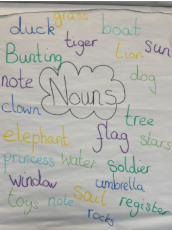 grass
duck boat
tiger sun
Bunting Lion
note dog
Nouns
clown tree
elephant flag stars
princess water soldier
window umbrella
toys note sail register
rocks